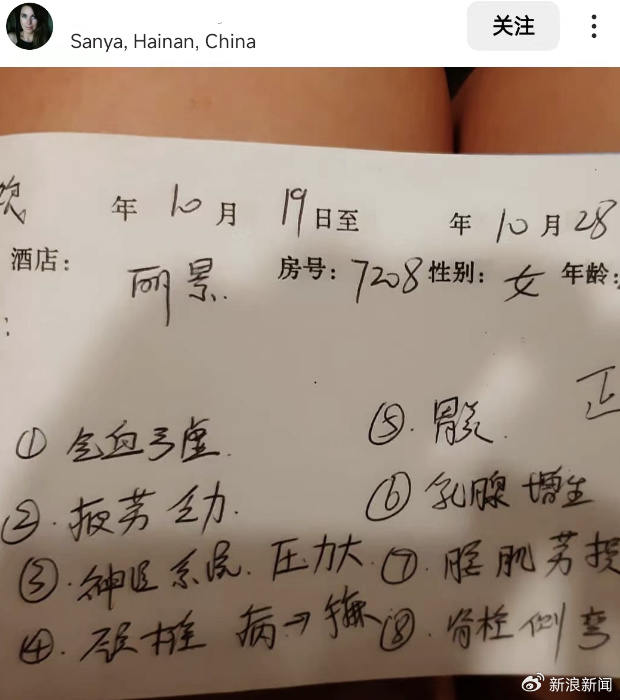 Sanya, Hainan, China
关注
年 10 月 19 日至 年 10 月 28
酒店: 丽景. 房号: 7208 性别: 女 年龄:
:
正
① 气血亏虚.
⑤. 胃炎.
②. 疲劳乏力.
⑥ 乳腺增生
③. 神经系统. 压力大
⑦. 腰肌劳损
④. 颈椎病→手麻
⑧. 脊柱侧弯
新浪新闻